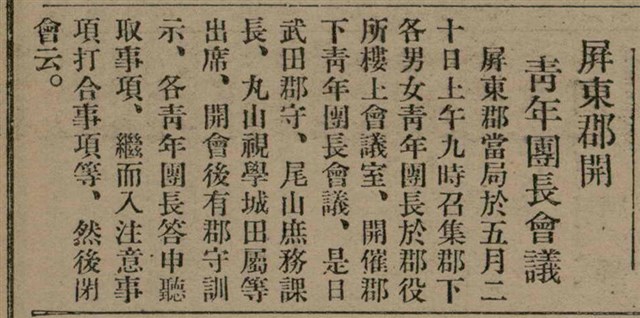 屏東郡開
靑年團長會議
屏東郡當局於五月二
十日上午九時召集郡下
各男女靑年團長於郡役
所樓上會議室、開催郡
下靑年團長會議、是日
武田郡守、尾山庶務課
長、丸山視學城田屬等
出席、開會後有郡守訓
示、各靑年團長答申聽
取事項、繼而入注意事
項打合事項等、然後閉
會云。